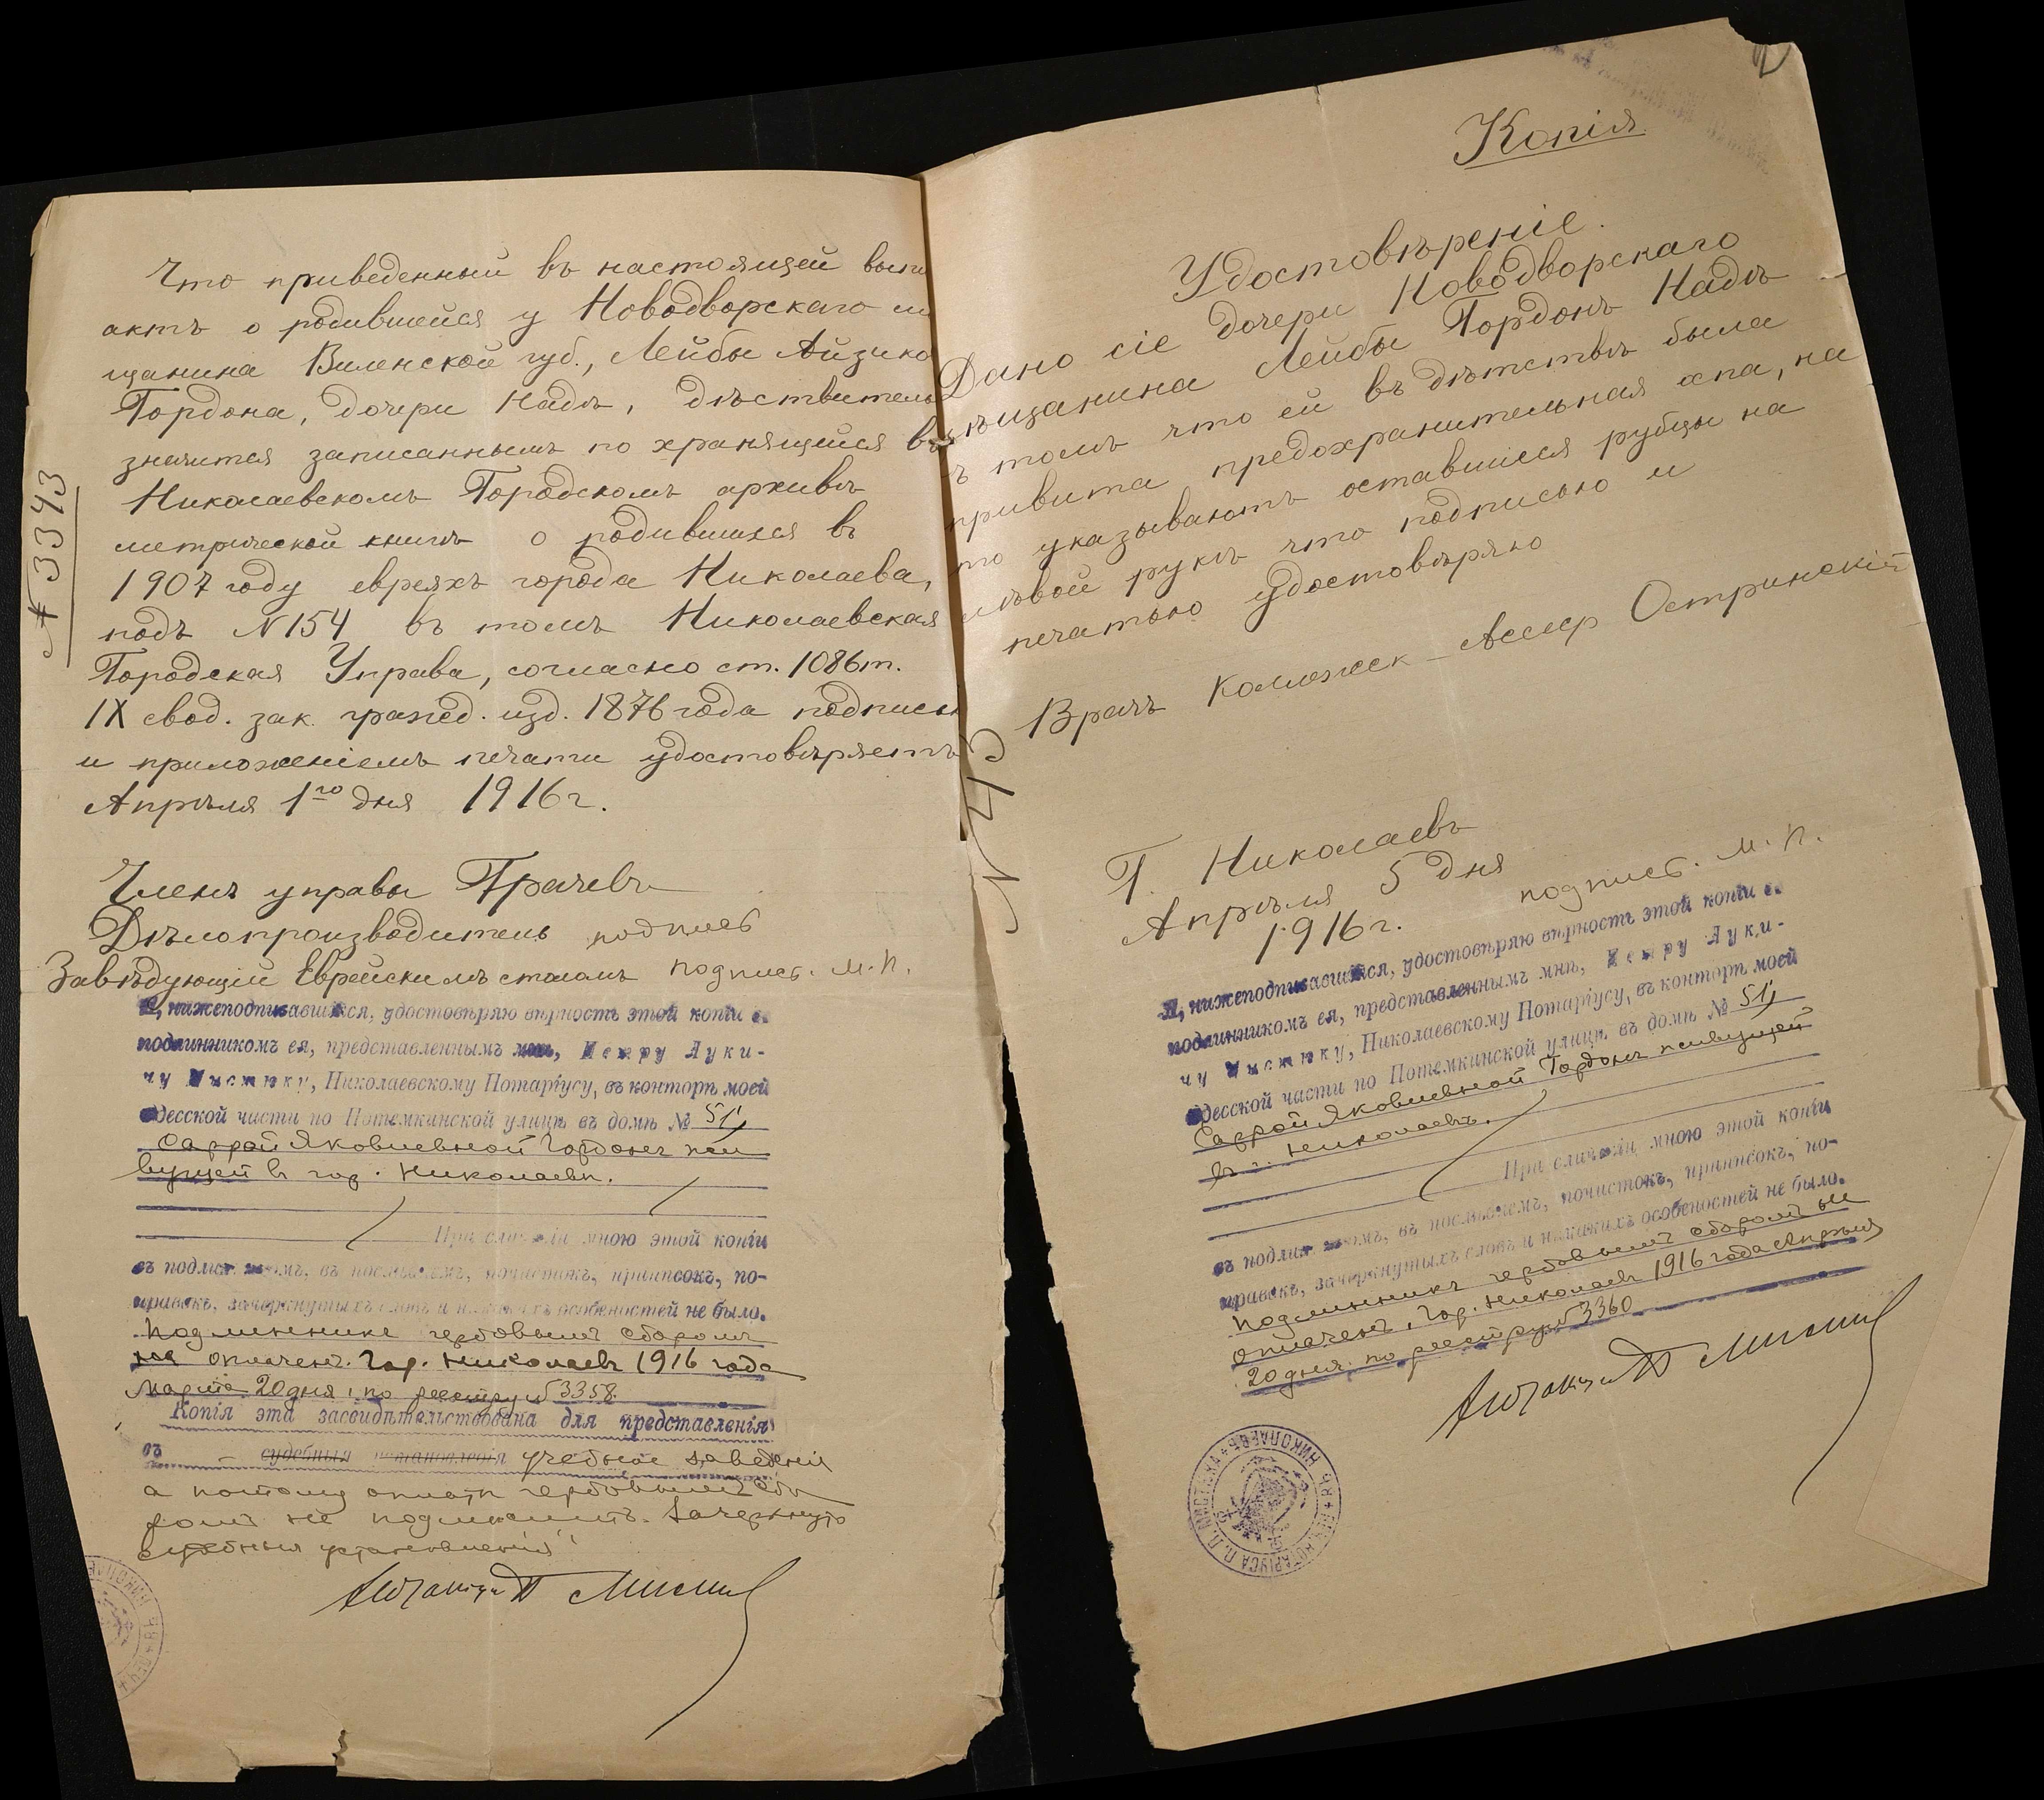 Что приведенный въ настоящей выпи
актъ о родившейся у Новодворскаго м
щанина Виленской губ., Лейбы Айзико
Гордона, дочери Надѣ, дѣствитель
значится записаннымъ по хранящейся въ
Николаевскомъ Городскомъ архивѣ
метрической книгѣ о родившихся въ
1907 году евреяхъ города Николаева,
подъ N 154 въ томъ Николаевская
Городская Управа, согласно ст. 1086 т.
IX свод. зак. гражд. изд. 1876 года подписью
и приложеніемъ печати удостовѣряетъ
Апрѣля 1го дня 1916 г.
№ 3343
Членъ управы Грачевъ
Дѣлопроизводитель подпись
Завѣдующій Еврейскимъ столомъ подпись. М.П.
Я, нижеподписавшійся, удостовѣряю вѣрность этой копіи съ
подлинникомъ ея, представленнымъ мнѣ, Петру Луки-
чу Мистюку, Николаевскому Нотаріусу, въ конторѣ моей
Одесской части по Потемкинской улицѣ въ домѣ № 51,
Саррой Яковлевной Гордонъ жи
вущей въ гор. Николаевѣ.
При сличеніи мною этой копіи
съ подлинникомъ, въ послѣднемъ, почистокъ, приписокъ, по-
правокъ, зачеркнутыхъ словъ и никакихъ особеностей не было.
Подлинникъ гербовымъ сборомъ
не оплаченъ. Гор. Николаевъ 1916 года
Марта 20 дня, по реестру № 3358.
Копія эта засвидѣтельствована для представленія
въ судебныя установленія учебное заведенія
а потому оплатѣ гербовымъ сбо
ромъ не подлежитъ. Зачеркнуто
"судебныя установленія"
Нотаріусъ П Мистюк
Копія
Удостовѣреніе.
Дано сіе дочери Новодворскаго
мѣщанина Лейбы Гордонъ Надѣ
въ томъ что ей въ дѣтствѣ была
привита предохранительная оспа, на
что указываютъ оставшіеся рубцы на
лѣвой рукѣ что подписью и
печатью удостовѣряю
Врачъ Коллежск Ассеср Остринскій
N 43
Г. Николаевъ
Апрѣля 5 дня
1916 г. подпись. М.П.
Я, нижеподписавшійся, удостовѣряю вѣрность этой копіи съ
подлинникомъ ея, представленнымъ мнѣ, Петру Луки-
чу Мистюку, Николаевскому Нотаріусу, въ конторѣ моей
Одесской части по Потемкинской улицѣ въ домѣ № 51,
Саррой Яковлевной Гордонъ живущей
въ г. Николаевѣ.
При сличеніи мною этой копіи
съ подлинникомъ, въ послѣднемъ, почистокъ, приписокъ, по-
правокъ, зачеркнутыхъ словъ и никакихъ особеностей не было.
Подлинникъ гербовымъ сборомъ не
оплаченъ. Гор. Николаевъ 1916 года Апрѣля
20 дня. по реестру № 3360
Нотаріусъ П Мистюк